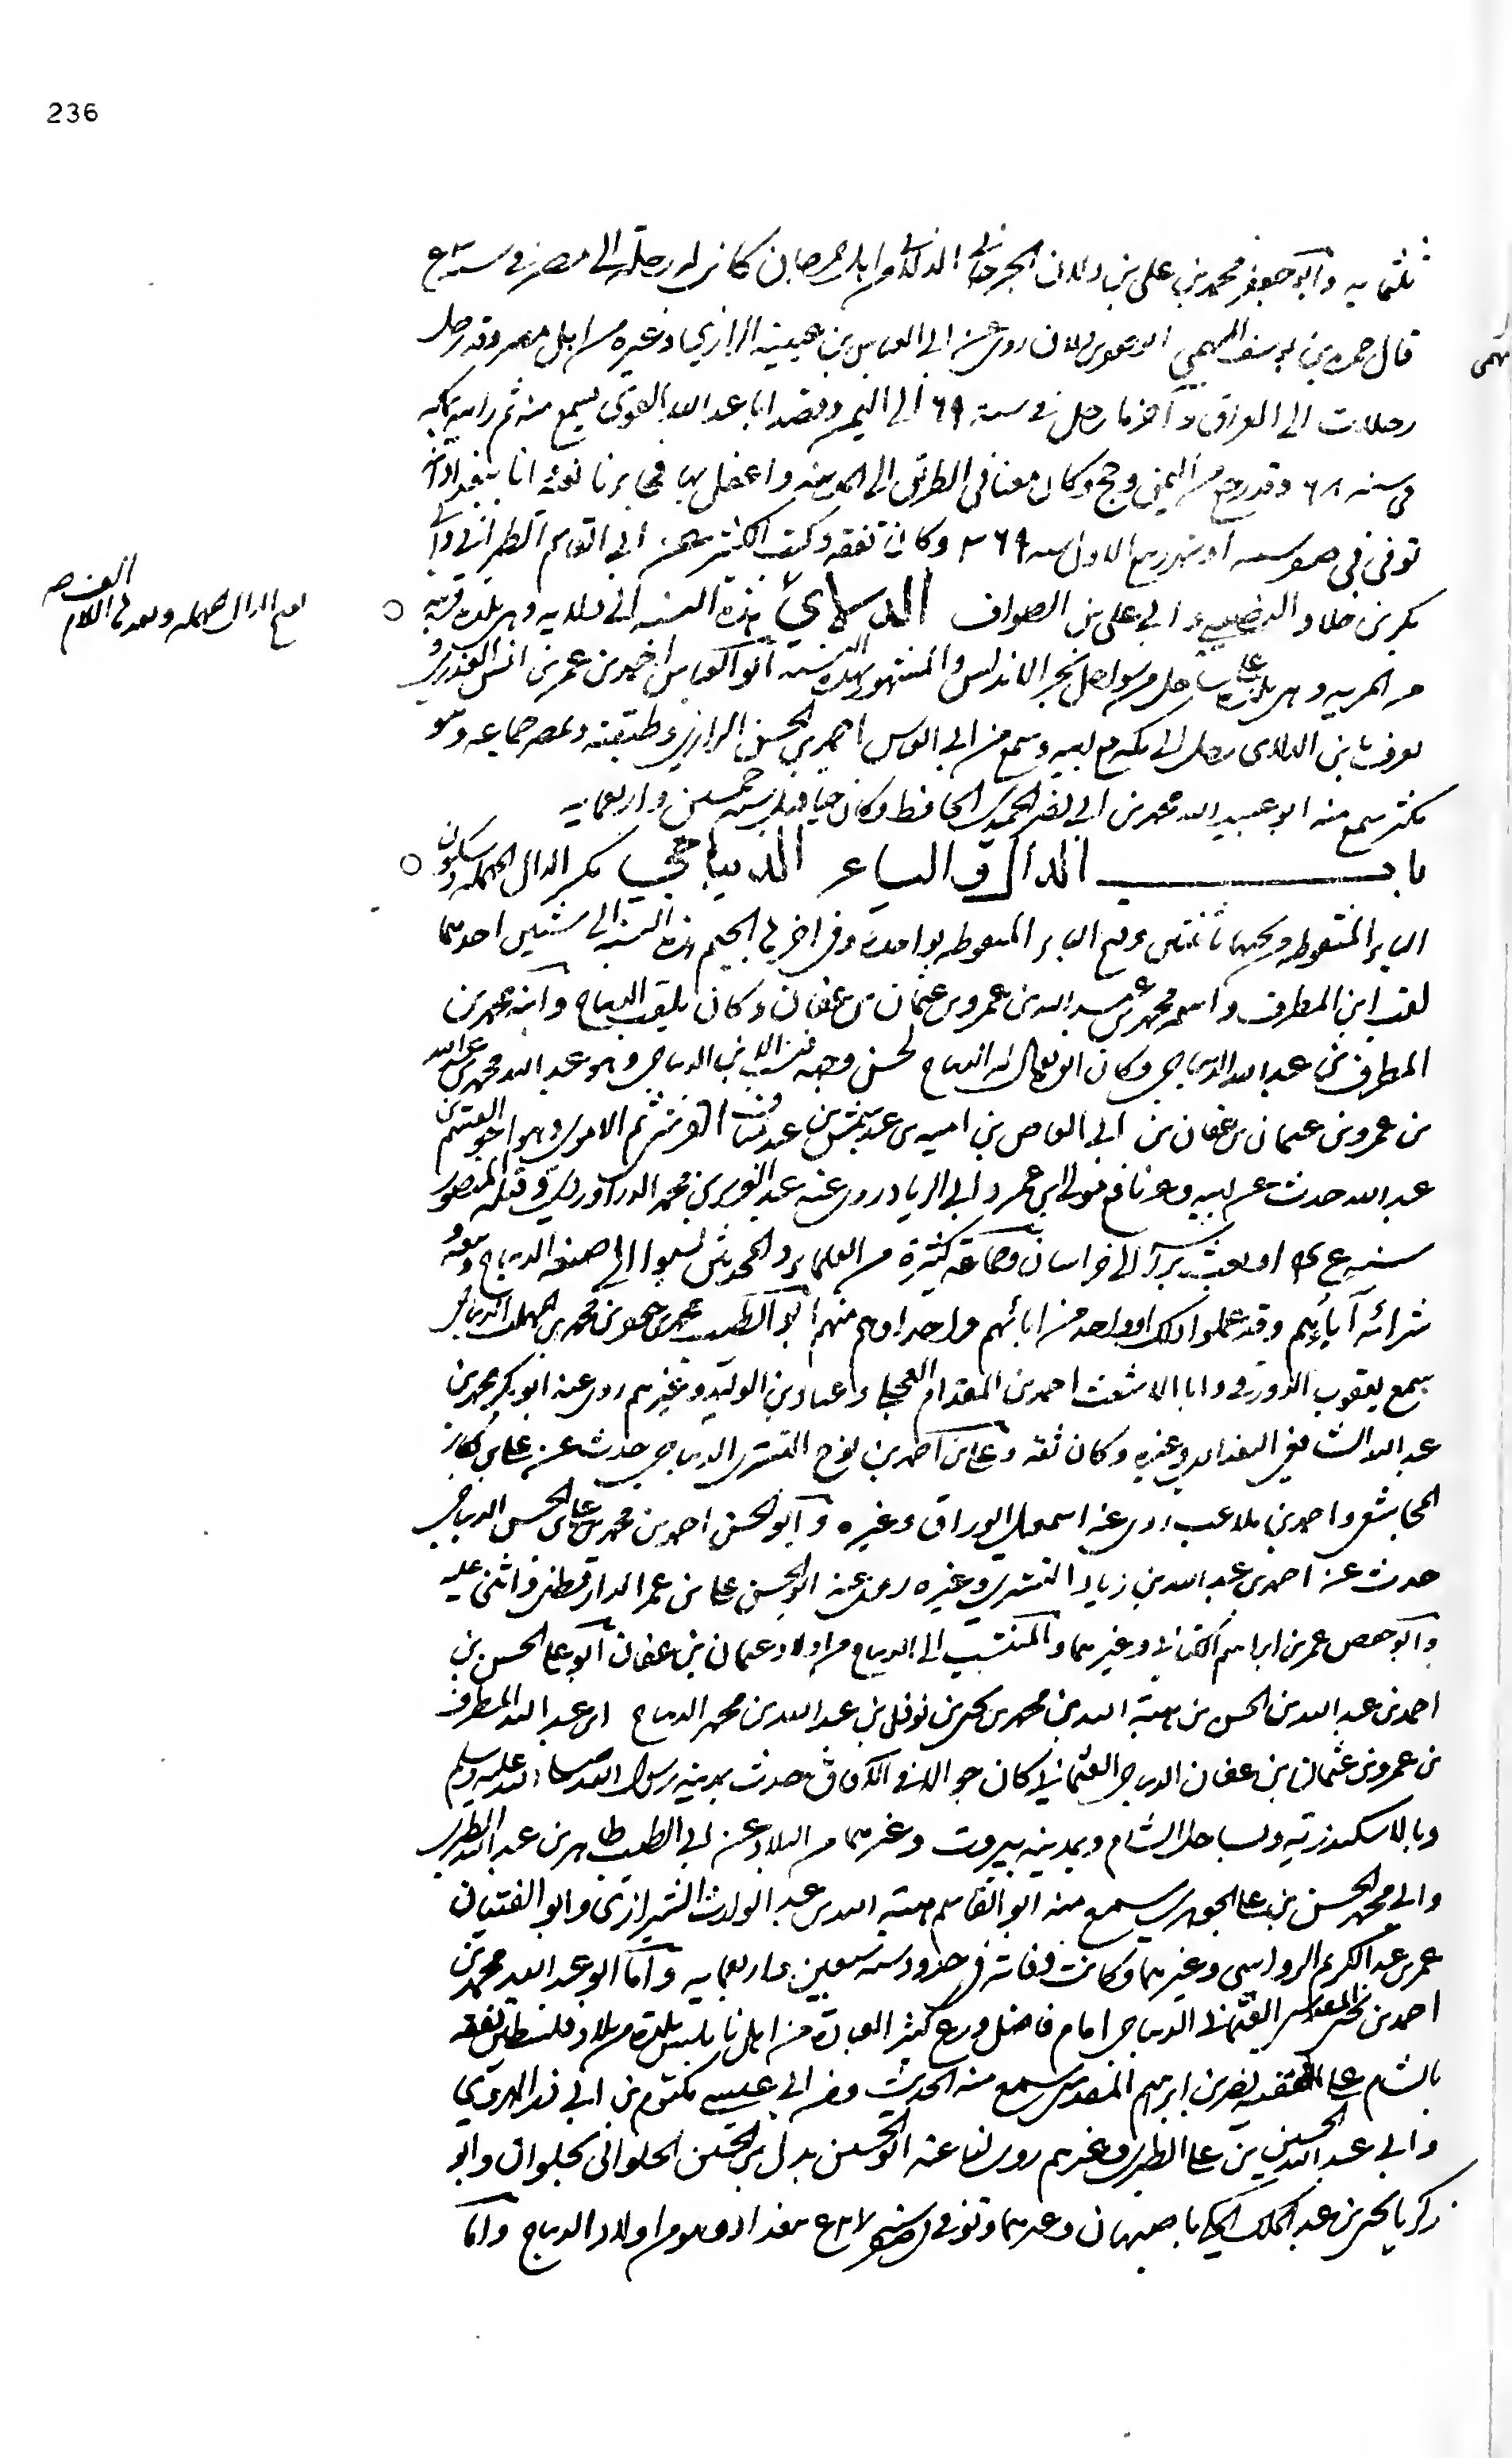 236
ثلثمايه وابو جعفر محمد بن على بن دلان الجرجاني الدلاني من اهل جرجان كانت له رحلة الى مصر في سنة
قال حمزة بن يوسف السهمي ابو جعفر بن دلان روى عن ابي العباس بن عيينة الرازي وغيره من اهل مصر وقد رحل
رحلات الى العراق وآخر ما رحل في سنة ٦٩ الى اليمن وقصد ابا عبد الله النقوي ليسمع منه ثم رايته بمكه
في سنه ٦٨ وقد رجع من اليمن وحج وكان معنا في الطريق الى المدينه واعتل بها فجاءنا نعيه انا ببغداد انه
توفي في صفر او شهر ربيع الاول سنه ٣٦٩ وكان تفقه وكتب الكثير عن ابي القاسم الطبراني وابي
بكر بن خلاد النصيبي وابي على بن الصواف الدلائي هذه النسبه الى دلايه وهي بلده قريبه
بفتح الدال المهمله وبعدها اللام الف
من المريه وهي بلدة على ساحل من سواحل بحر الاندلس والمشهور بهذه النسبه ابو العباس احمد بن عمر بن انس العذري
يعرف بابن الدلائي رحل الى مكه مع ابيه وسمع من ابي العباس احمد بن الحسن الرازي وطبقته وبمصر جماعه وهو
مكثر سمع منه ابو عبد الله محمد بن ابي نصر الحميدي الحافظ وكان حيا قبل سنه خمسين واربعمايه
باب الدال والياء الديباجي بكسر الدال المهمله وسكون
الياء المنقوطه من تحتها باثنتين وفتح الباء المنقوطه بواحدة وفي اخرها الجيم هذه النسبه الى شيئين احدهما
لقب ابن المطرف واسمه محمد بن عبد الله بن عمرو بن عثمان بن عفان وكان يلقب الديباج وابنه محمد بن
المطرف بن عبد الله الديباجي وكان ابوه يقال له الديباج لحسن وجهه فنسب الابن الديباجي وهو عبد الله محمد بن عبد الله
بن عمرو بن عثمان بن عفان بن ابي العاص بن اميه بن عبد شمس بن عبد مناف القرشي ثم الاموي وهو اخو القسم بن
عبد الله حدث عن ابيه وعن نافع مولى ابن عمر وابي الزناد روى عنه عبد العزيز بن محمد الدراوردي وقتله المنصور
سنه او بعث براسه الى خراسان وجماعة كثيرة من العلماء والمحدثين نسبوا الى صنعه الديباج وبيعه و
شرائه آباؤهم وقد عملوا ذلك او واحد من ابائهم واجدادهم منهم ابو الطيب محمد بن جعفر بن محمد بن المهلب الديباجي
سمع يعقوب الدورقي وابا الاشعث احمد بن المقدام العجلي وعباد بن الوليد وغيرهم روى عنه ابو بكر محمد بن
عبد الله الشافعي البغدادي وغيره وكان ثقه وعلى بن احمد بن نوح التستري الديباجي حدث عن على بن بكار
المجاشعي واحمد بن ملاعب روى عنه اسمعيل الوراق وغيره وابو الحسن احمد بن محمد بن على بن الحسن الديباجي
حدث عن احمد بن عبد الله بن زياد التستري وغيره روى عنه ابو الحسن على بن عمر الدارقطني واثنى عليه
وابو حفص عمر بن ابراهيم الكتاني وغيرهما والمنتسب الى الديباج من اولاد عثمان بن عفان ابو على الحسن بن
احمد بن عبد الله بن الحسن بن هبة الله بن محمد بن يحيى بن نوفل بن عبد الله بن محمد الديباج ابن عبد الله المطرف
بن عمرو بن عثمان بن عفان الديباجي العثماني كان جوالا في الآفاق حدث بمدينه رسول الله صلى الله عليه وسلم
وبالاسكندريه وبساحل الشام وبمدينه بيروت وغيرهما من البلاد عن ابي الطيب طاهر بن عبد الله الطبري
وابي محمد الحسن بن على الجوهري سمع منه ابو القاسم هبة الله بن عبد الوارث الشيرازي وابو الفتيان
عمر بن عبد الكريم الرواسي وغيرهما وكانت وفاته في حدود سنه سبعين واربعمايه واما ابو عبد الله محمد بن
احمد بن يحيى المقدسي العثماني الديباجي امام فاضل ورع كثير العبادة من اهل نابلس بلدة من بلاد فلسطين تفقه
بالشام على الفقيه نصر بن ابراهيم المقدسي سمع منه الحديث ومن ابي عيسى مكتوم بن ابي ذر الهروي
وابي عبد الله الحسين بن على الطبري وغيرهم روى لنا عنه ابو الحسين بدل بن الحسين الحلواني بحلوان وابو
زكريا يحيى بن عبد الملك المكي باصبهان وغيرهما وتوفي في صفر سنه ببغداد وهو من اولاد الديباج واما